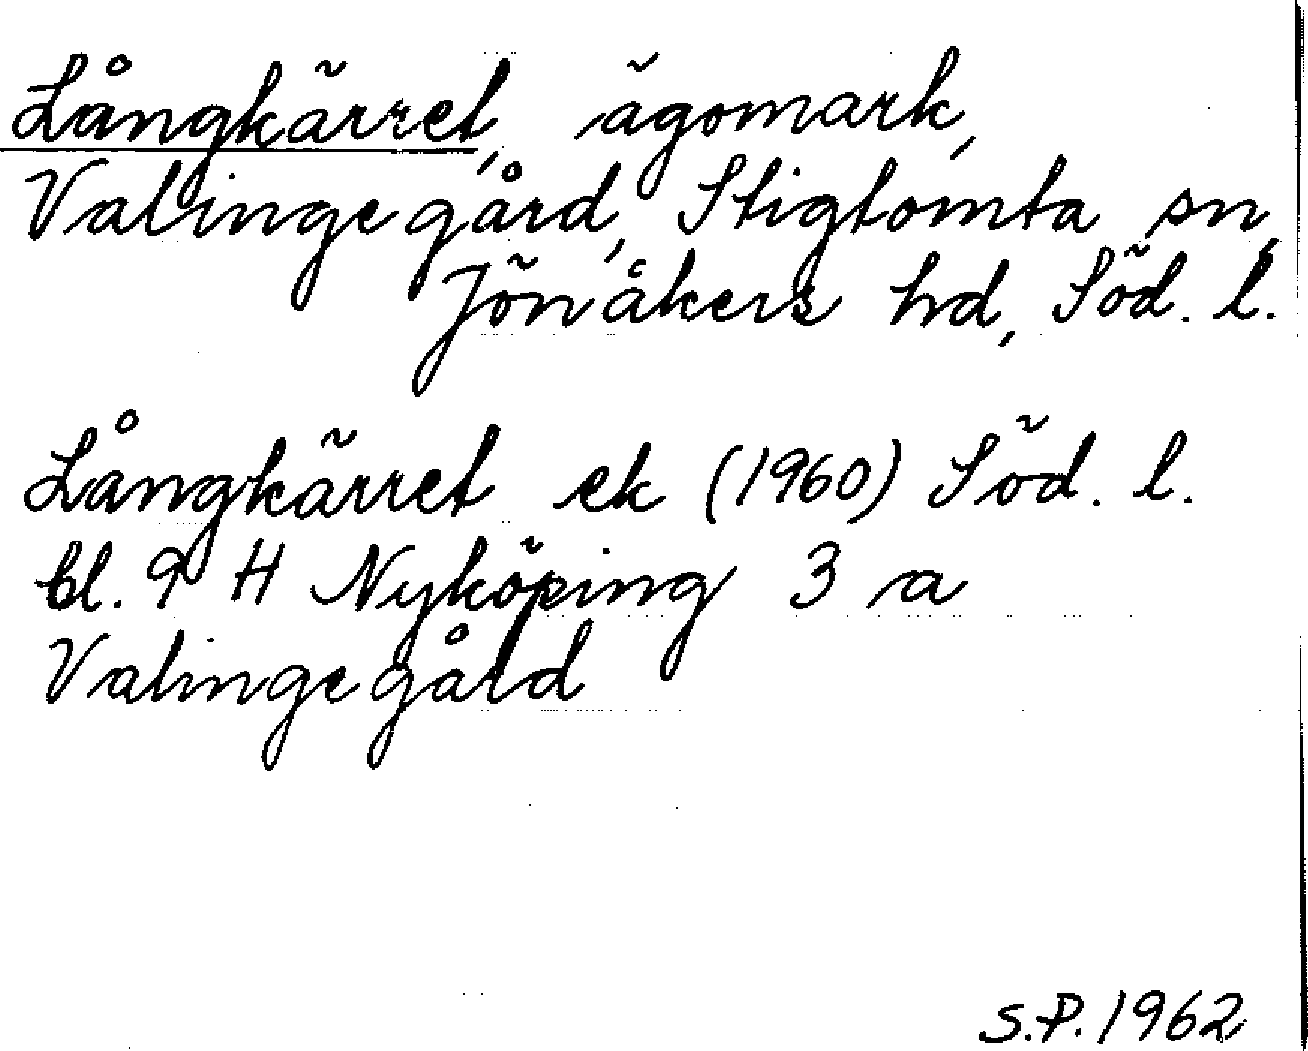 Långkärret, ägomark,
Valinge gård, Stigtomta sn,
Jönåkers hd, Söd. l.
Långkärret ek (1960) Söd. l.
bl. 9 H Nyköping 3 a
Valinge gård
S.P. 1962